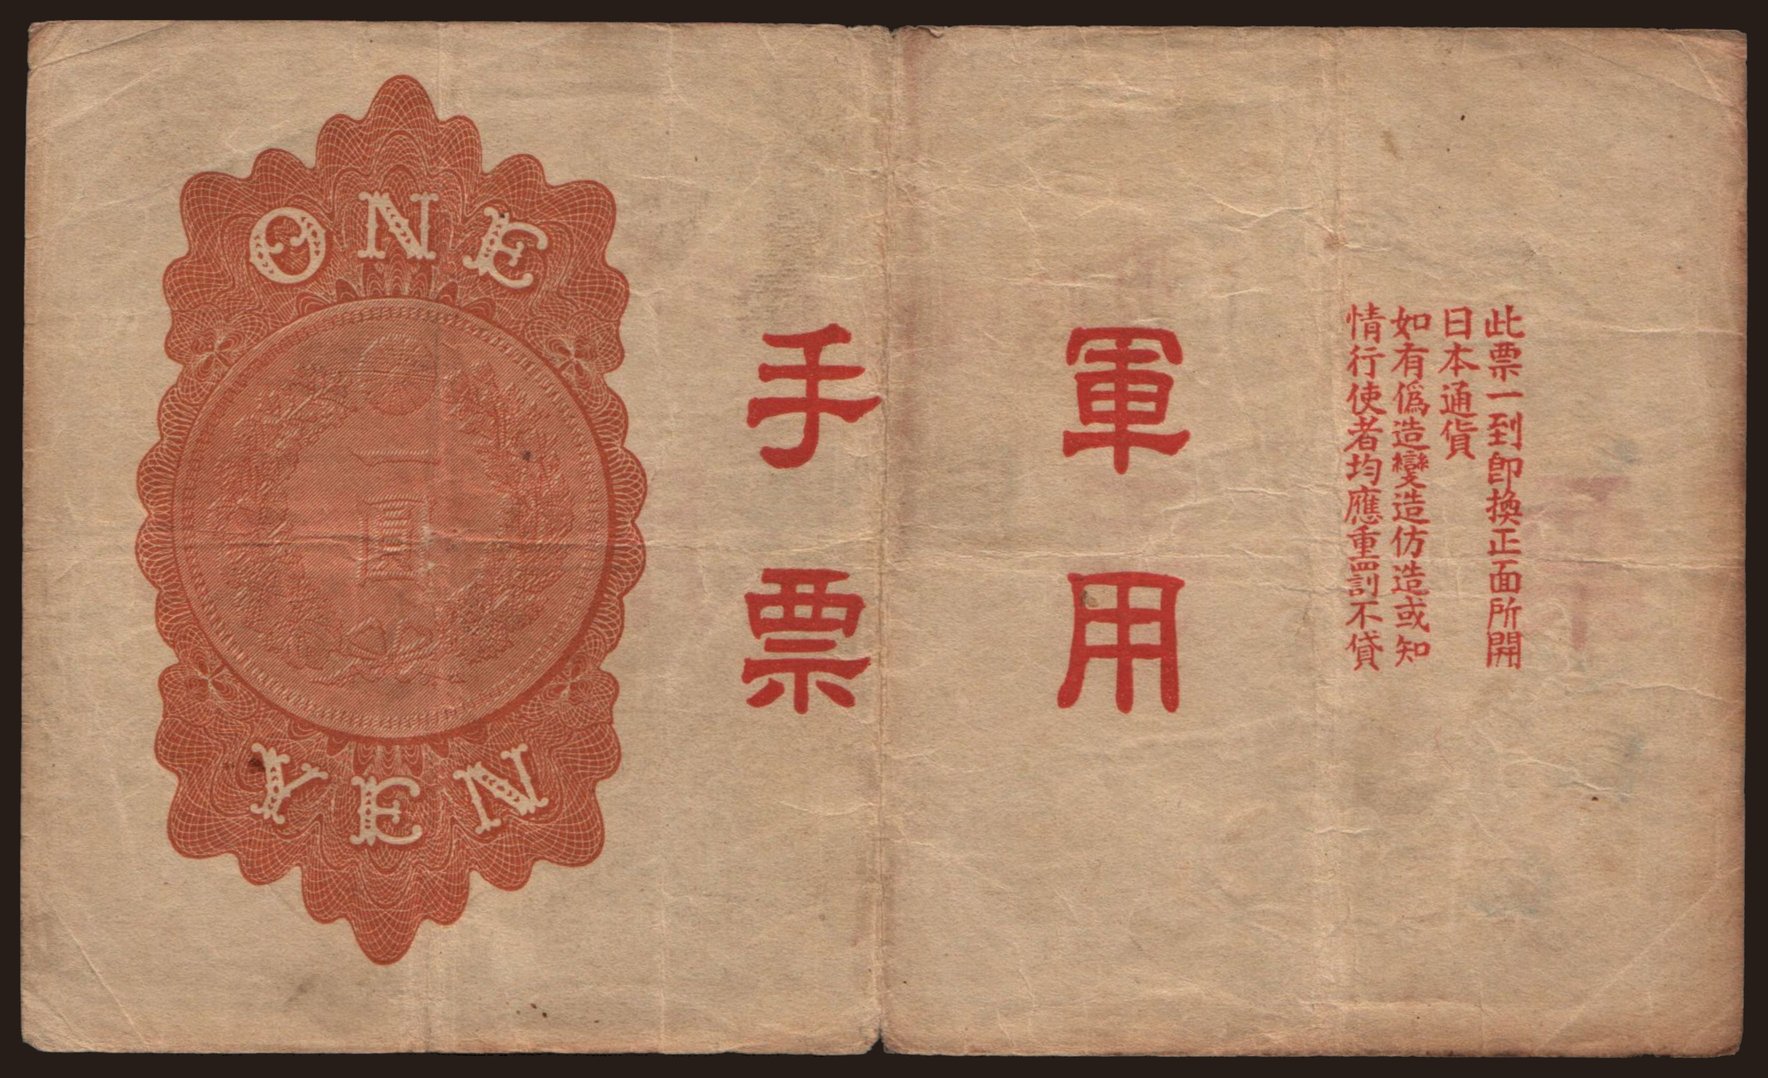 此票一到即換正面所開
日本通貨
如有僞造變造仿造或知
情行使者均應重罰不貸
軍用
手票
ONE
一圓
YEN